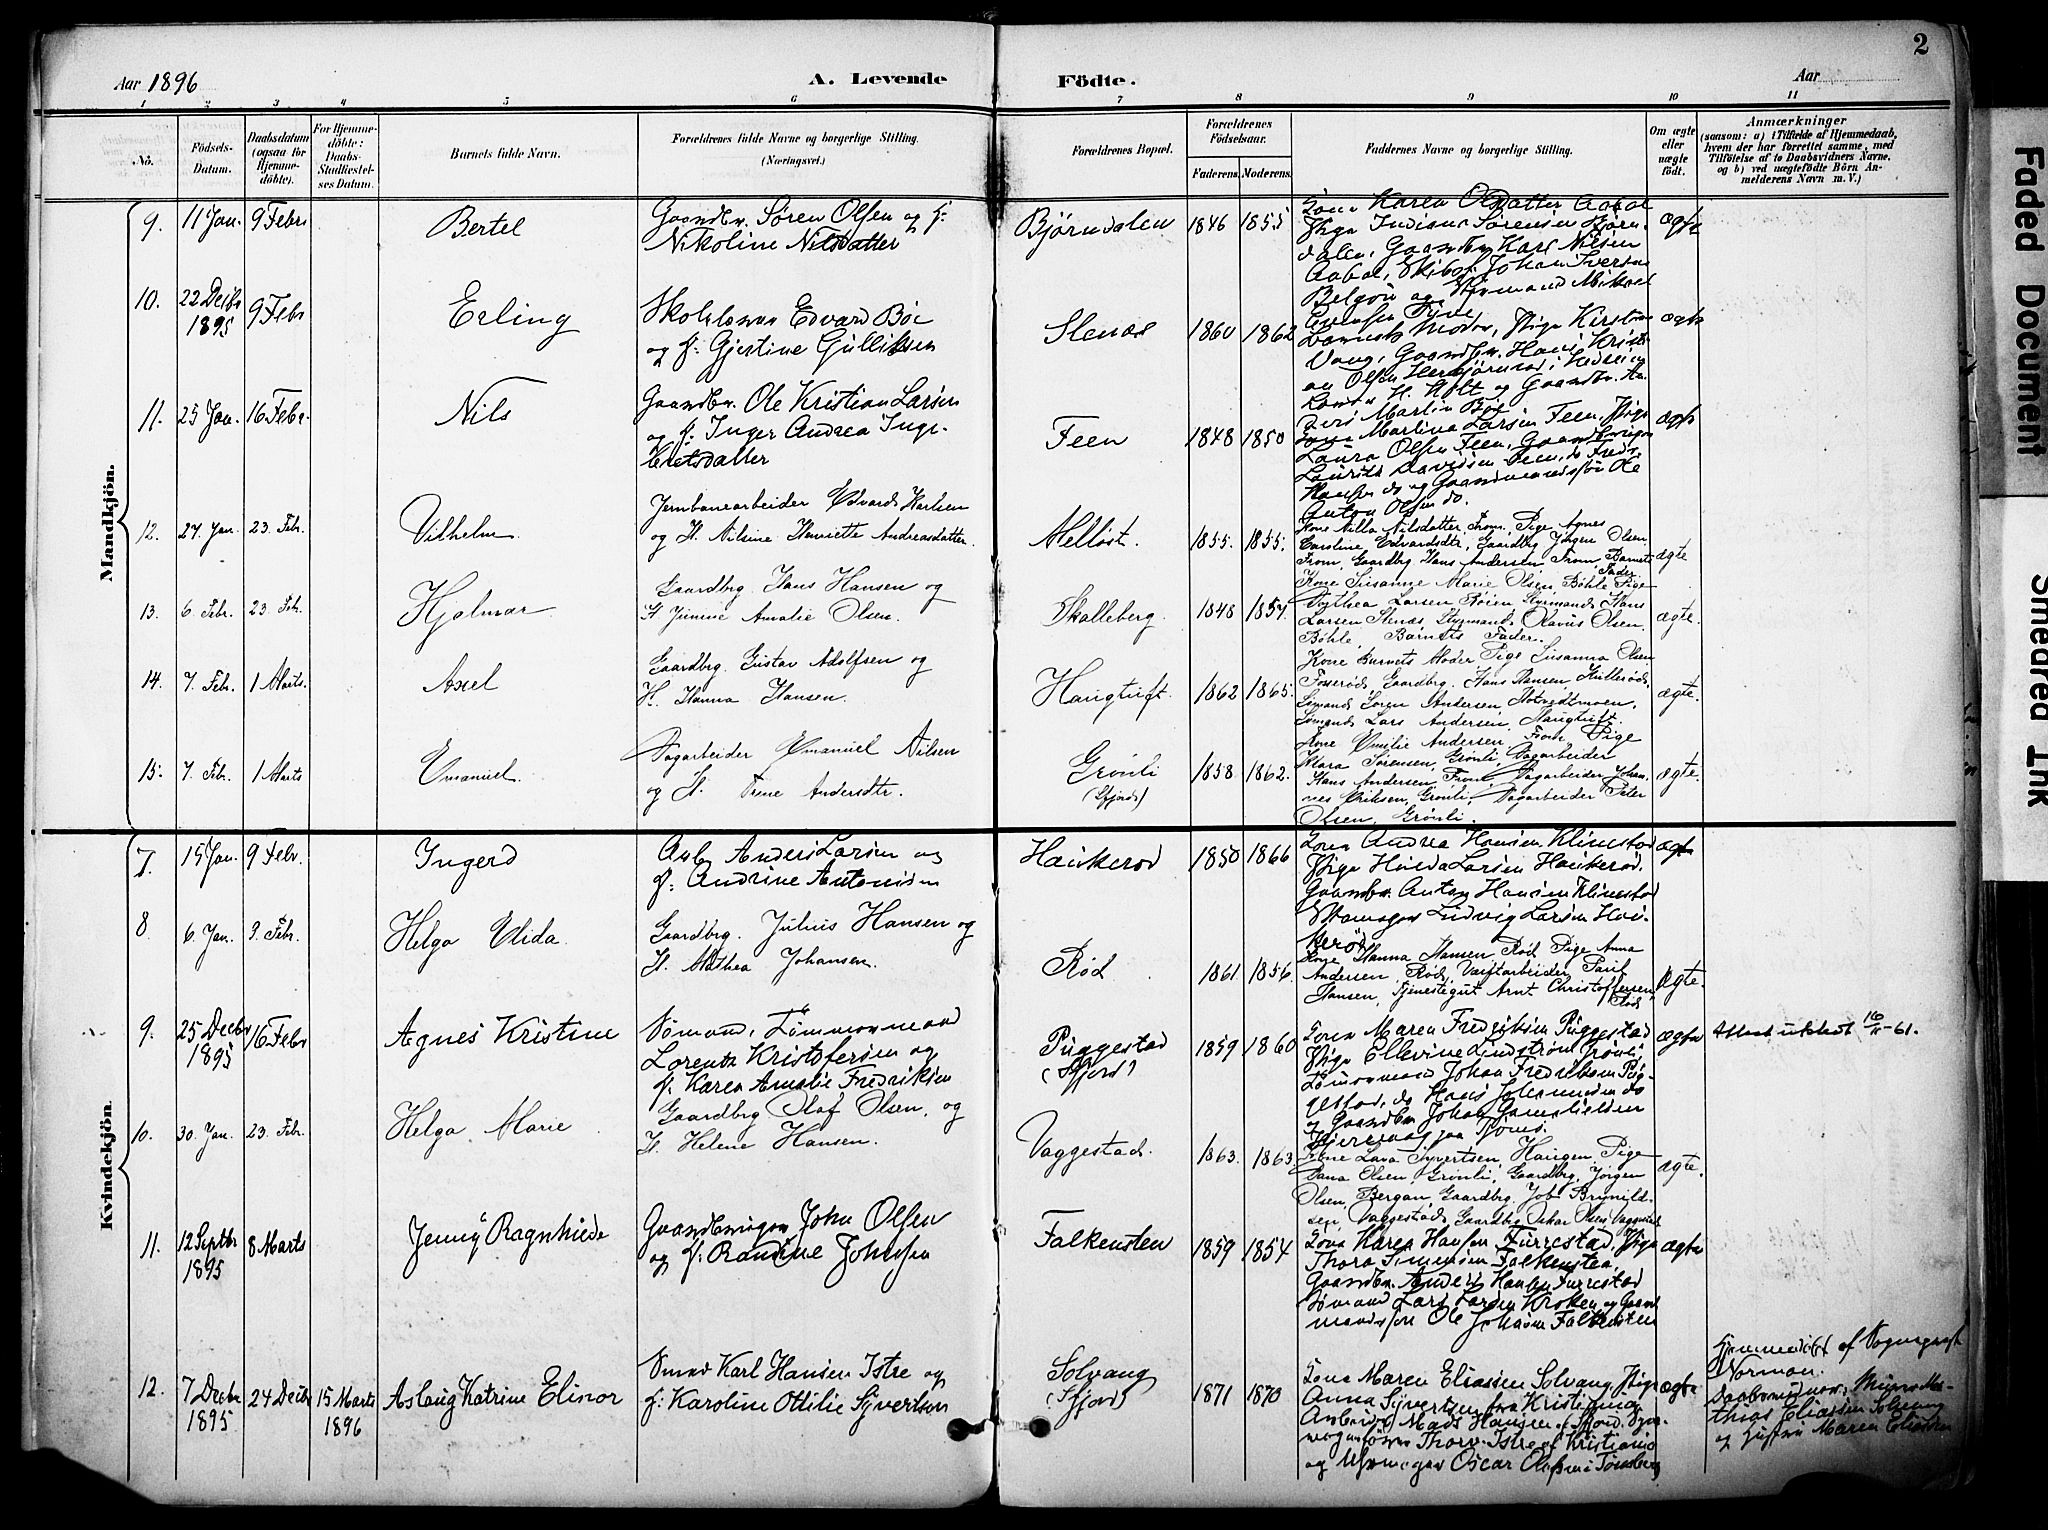 2
Aar 1896
A. Levende
Födte.
Aar
1 2 3 4 5 6 7 8 9 10 11
No.
Födsels-
Datum.
Daabsdatum
(ogsaa for
Hjemme-
döbte).
For Hjemme-
döbte:
Daabs-
Stadfæstel-
ses Datum.
Barnets fulde Navn.
Forældrenes fulde Navne og borgerlige Stilling.
(Næringsvei.)
Forældrenes Bopæl.
Forældrenes
Födselsaar.
Faderens. Moderens.
Faddernes Navne og borgerlige Stilling.
Om ægte
eller
uægte
födt.
Anmærkninger
(saasom: a) i Tilfælde af Hjemmedaab,
hvem der har forrettet samme, med
Tilföielse af to Daabsvidners Navne,
og b) ved uægtefödte Börn An-
melderens Navn m. V.)
Mandkjön.
9. 11 Jan. 9 Febr
Bertel
Gaardbr. Søren Olsen og H:
Nikoline Nilsdatter
Bjørndalen
1846 1855
Kone Karen Olsdatter Aabøl
Pige Indiana Sørensen Bjørn-
dalen, Gaardbr. Karl Nilsen
Aabøl, Skibsf. Johan Iversen
ægte
10. 22 Decbr
1895
9 Febr
Erling
Edvard Bøe
og H: Gjertine Gulliksen
1860 1862
Barnets Moder, Pige
ægte
11. 25 Jan. 16 Febr.
Nils
Gaardbr. Ole Kristian Larsen
og H: Inger Andrea Inge-
bretsdatter
Feen
1848 1850
Kone Martina Larsen Feen, Pige
Laura Olsen Feen,
Anton Olsen do.
ægte
12. 27. Jan. 23. Febr.
Vilhelm
Jernbanearbeider Edvard Karlsen
og H. Nilsine Henriette Andreasdatter.
Melløst.
1855. 1855.
Kone Nilla Nilsdatter, From. Pige Agnes
Caroline Edvardsdtr, Gaardbrg Jørgen Olsen
From, Gaardbrg Hans Andersen From, Barnets
Fader
ægte
13. 6. Febr. 23. Febr.
Hjalmar
Gaardbrg. Hans Hansen og
H. Jinine Amalie Olsen.
Skalleberg.
1848 1854.
Kone Susanne Marie Olsen Bøhle, Pige
Dorthea Larsen Røien, Styrmand Hans
Larsen Stenæs, Styrmand Olavus Olsen,
Bøhle, Barnets Fader.
ægte.
14. 7. Febr. 1 Marts.
Axel
Gaardbrg. Gustav Adolfsen og
H. Hanna Hansen.
Haugtuft.
1862 1865.
Kone Barnets Moder, Pige Susanna Olsen
Fosserød, Gaardbrg. Hans Hansen Hullerød,
Sømand Søren Andersen
Sømand Lars Andersen, Haugtuft.
ægte.
15. 7. Febr. 1 Marts
Emanuel.
Dagarbeider Emanuel Nilsen
og H. Trine Andersdtr.
Grønli
(Sfjord)
1858 1862.
Kone Emilie Andersen, From, Pige
Klara Sørensen, Grønli, Dagarbeider
Hans Andersen, From, Dagarbeider Johan-
nes Eriksen, Grønli, Dagarbeider Peter
Olsen, Grønli.
ægte.
Kvindekjön.
7. 15 Jan. 9 Febr.
Ingerd
Arb. Anders Larsen og
H: Andrine Antonisen
Haukerød
1850 1866
Kone Andrea Hansen Klinestad
Pige Hulda Larsen Haukerød,
Gaardbr. Anton Hansen Klinestad
Ludvig Larsen Hau-
kerød
ægte
8. 6. Jan. 3. Febr.
Helga Elida.
Gaardbrg. Julius Hansen og
H. Mathea Johansen.
Rød.
1861 1856.
Kone Hanna Hansen, Rød, Pige Anna
Andersen, Rød, Værftarbeider Paul
Hansen, Tjenestegut Arnt Christoffersen,
Rød
Ægte.
9. 25 Decbr
1895
16 Febr
Agnes Kristine
Sømand, Tømmermand
Lorents Kristofersen og
H: Karen Amalie Fredriksen
Puggestad
(Sfjord)
1859 1860
Kone Maren Fredriksen Puggestad
Pige Ellevine Lindstrøm, Grønli,
Tømmermand Johan Fredriksen Pug-
gestad, do Hans Johannesen do
og Gaardbr. Johan
paa Tjømø.
ægte
Attest utstedt 16/11-61.
10. 30. Jan. 23. Febr.
Helga Marie
Gaardbrg Olaf Olsen, og
H. Helene Hansen.
Vaggestad.
1863. 1863
Kone Lava Syvertsen, Haugen, Pige
Dana Olsen, Grønli, Gaardbrg. Jørgen
Olsen, Bergan, Gaardbrg. Job Brynild-
sen, Vaggestad, Gaardbrg Oskar Olsen, Vaggestad
ægte.
11. 12 Septbr
1895
8 Marts
Jenny Ragnhilde
John Olsen
og H: Randine Johnsen
Falkensten
1859 1854
Kone Karen Hansen Furrestad, Pige
Thora Simensen Falkensten,
Gaardbr. Anders Hansen Furrestad
Sømand Lars Larsen Kroken og Gaard
mandsføn Ole Johnsen Falkensten
ægte
12. 7 Decbr
1895
24 Decbr
15 Marts
1896
Aslaug Katrine Elinor
Smed Karl Hansen Istre og
H: Karoline Ottilie Syvertsen
Solvang
(Sfjord)
1871 1870
Kone Maren Eliassen Solvang, Pige
Anna Syvertsen fra Kristiania,
Arbeider Mads Hansen, Sfjord,
Thorv. Istre af Kristiania
og Oscar Olsen i Tønsberg
ægte
Hjemmedøbt af Sogneprest
Norman.
Daabsvidner:
thias Eliassen Solvang
og Hustru Maren Eliassen
Faded Document
Smeared Ink